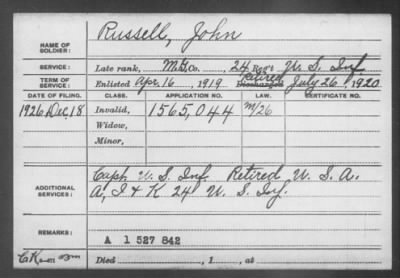 NAME OF SOLDIER: Russell, John
SERVICE: Late rank, M.G. Co. 24 Reg't U. S. Inf.
TERM OF SERVICE: Enlisted Apr. 16, 1919 Discharged Retired July 26, 1920
DATE OF FILING. CLASS. APPLICATION NO. LAW. CERTIFICATE NO.
1926 Dec. 18 Invalid, 1565,044 M/26
Widow,
Minor,
ADDITIONAL SERVICES: Capt. U. S. Inf. Retired U. S. A.
A, I & K 24 U. S. Inf.
REMARKS: A 1 527 842
Died , 1 , at